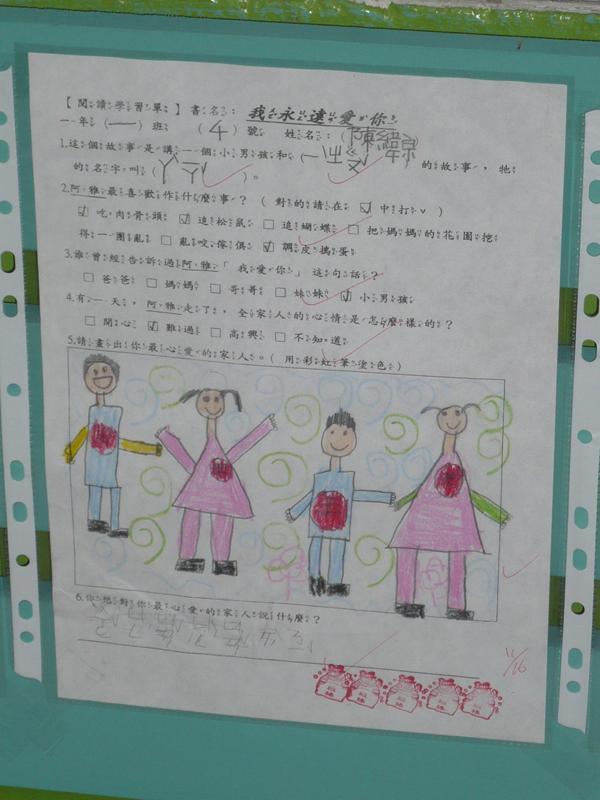 【閱讀學習單】 書名: 我永遠愛你
一年(一)班 (4)號 姓名:(陳
1.這個故事是講一個小男孩和( )的故事,牠
的名字叫(ㄚ ㄧㄚˇ)。
2.阿雅最喜歡作什麼事?(對的請在☑中打ˇ)
☑吃肉骨頭 ☑追松鼠 □追蝴蝶 □把媽媽的花園挖
得一團亂 □亂咬傢俱 ☑調皮搗蛋
3.誰曾經告訴過阿雅「我愛你」這句話?
□爸爸 □媽媽 □哥哥 □妹妹 ☑小男孩
4.有一天,阿雅走了,全家人的心情是怎麼樣的?
□開心 ☑難過 □高興 □不知道
5.請畫出你最心愛的家人。(用彩虹筆塗色)
6.你想對你最心愛的家人說什麼?
11/16